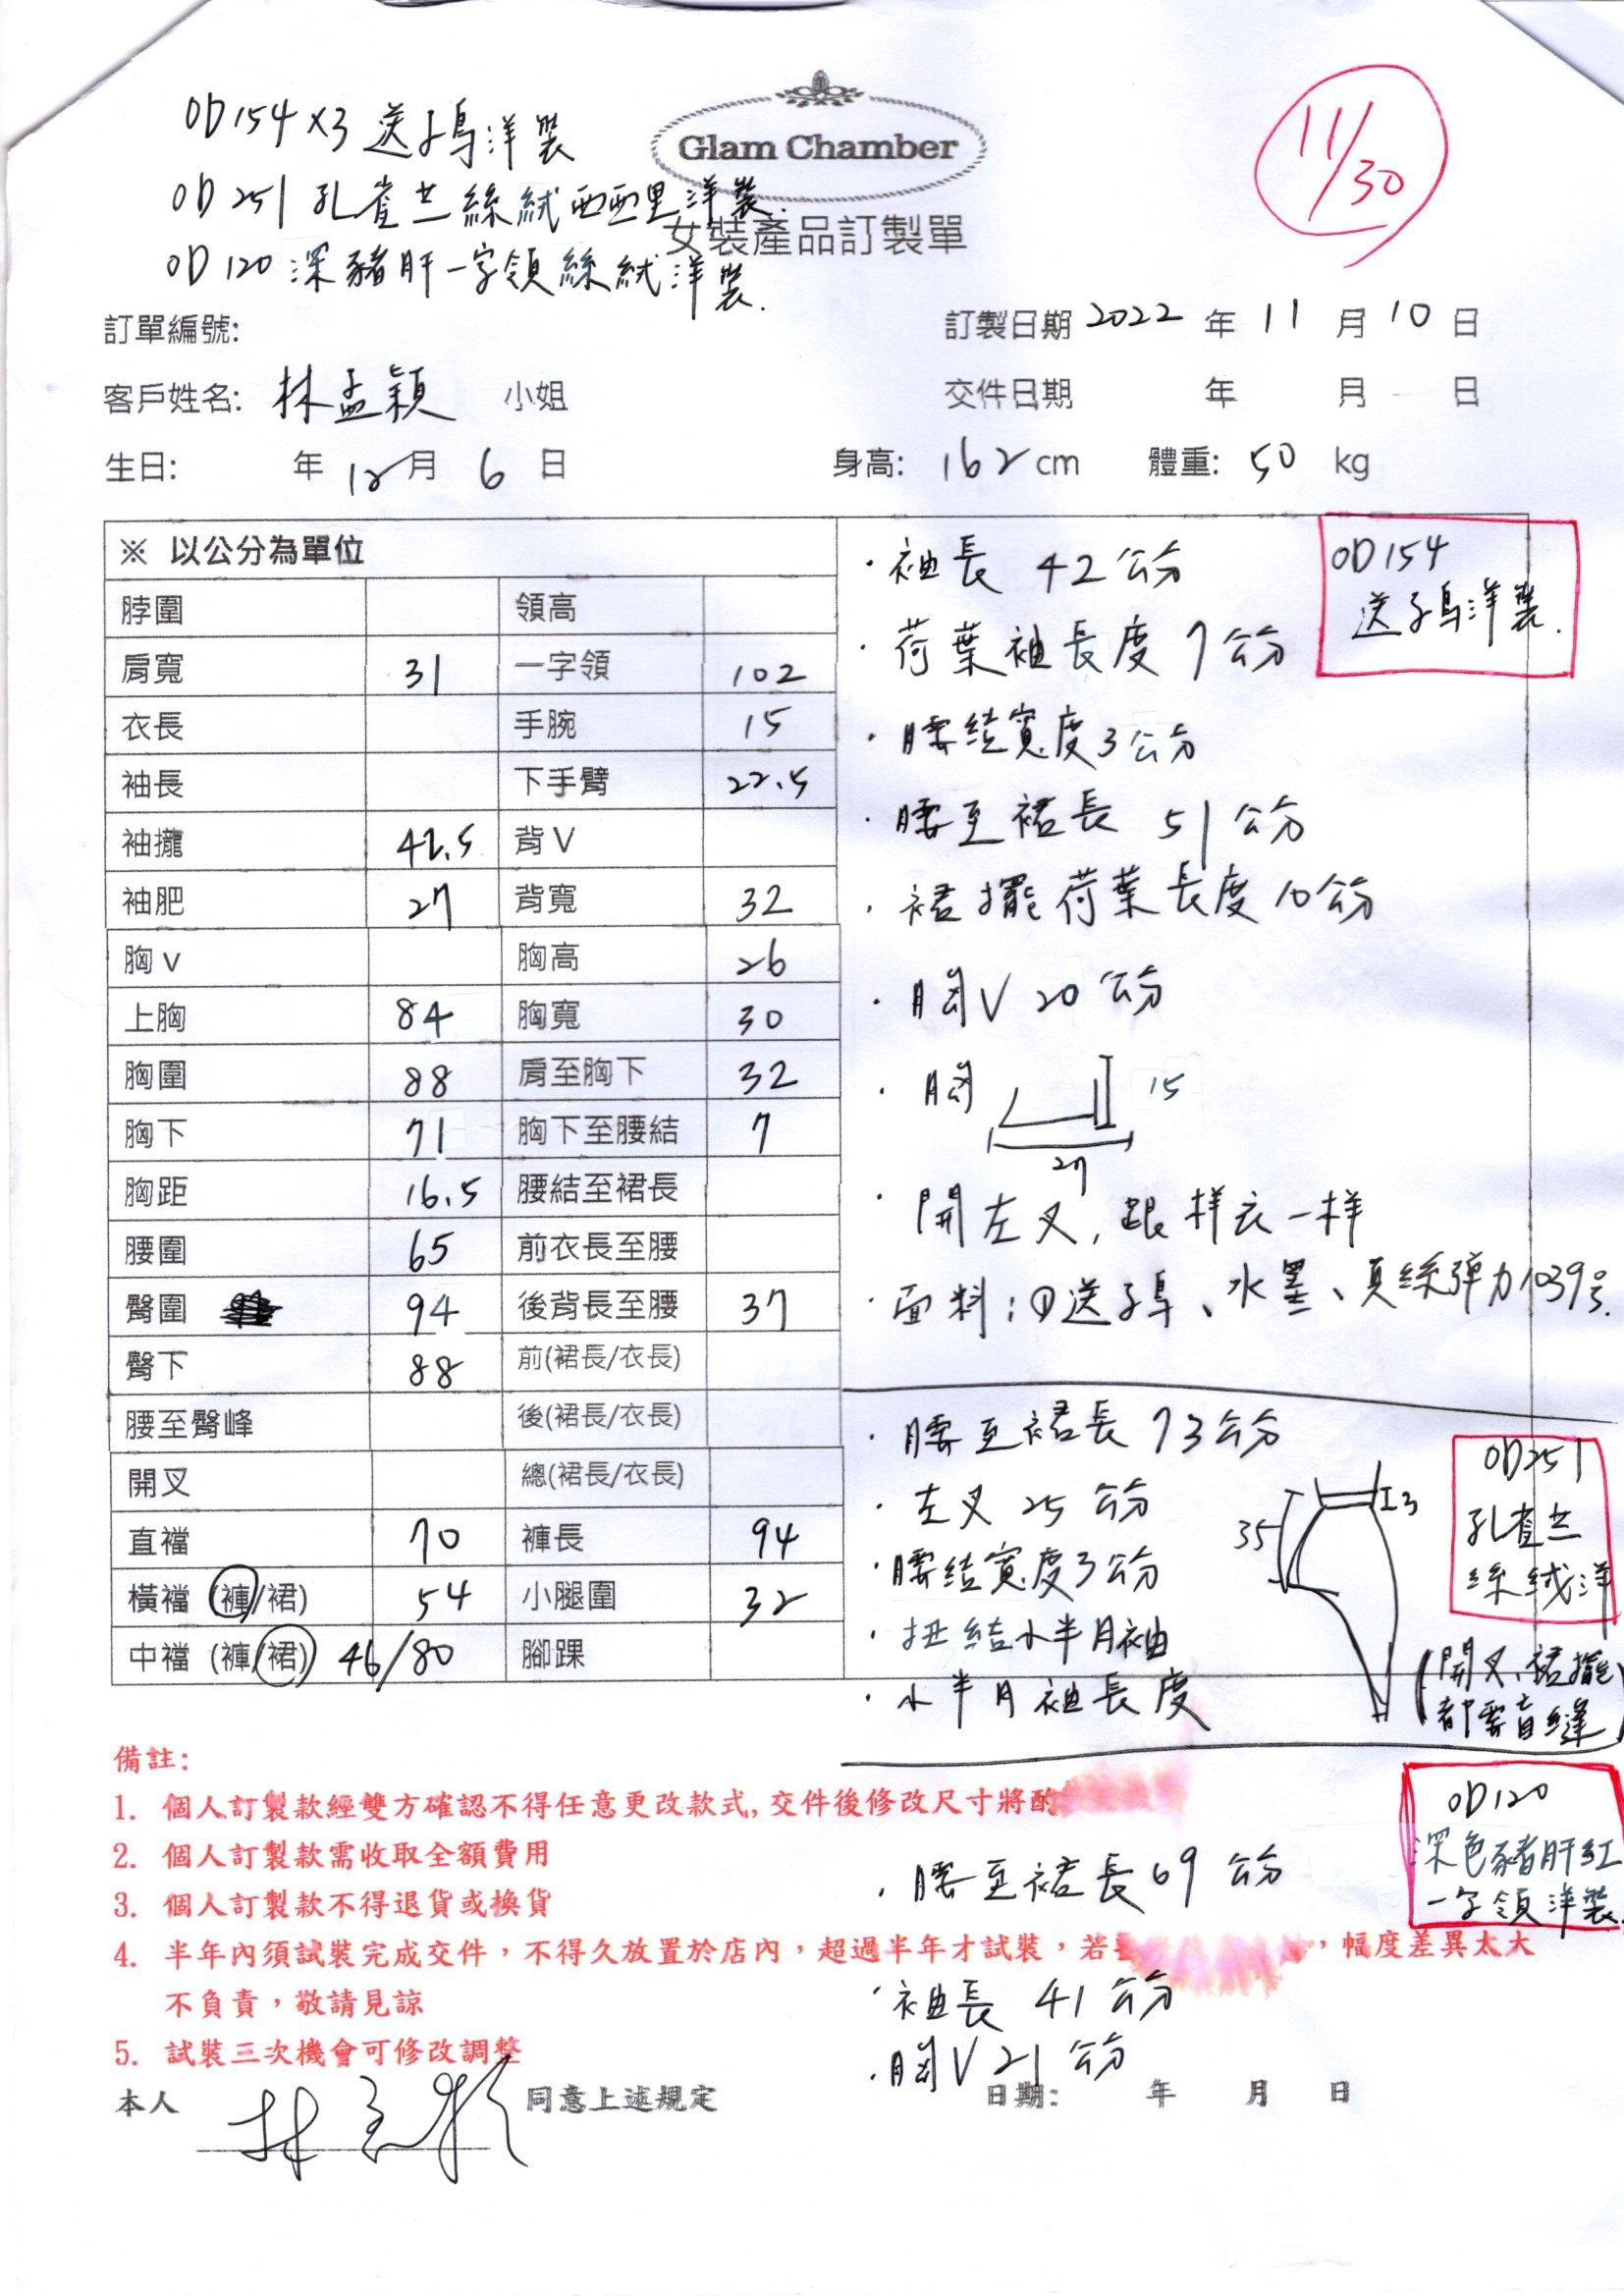 OD154 x3 送子鳥洋裝
Glam Chamber
11/30
OD251 孔雀兰絲絨西西里洋裝.
女裝產品訂製單
OD120 深豬肝一字領絲絨洋裝.
訂單編號: 訂製日期 2022 年 11 月 10 日
客戶姓名: 林孟穎 小姐 交件日期 年 月 日
生日: 年 12 月 6 日 身高: 162 cm 體重: 50 kg
※ 以公分為單位
脖圍 領高
肩寬 31 一字領 102
衣長 手腕 15
袖長 下手臂 22.5
袖攏 42.5 背V
袖肥 27 背寬 32
胸v 胸高 26
上胸 84 胸寬 30
胸圍 88 肩至胸下 32
胸下 71 胸下至腰結 7
胸距 16.5 腰結至裙長
腰圍 65 前衣長至腰
臀圍 94 後背長至腰 37
臀下 88 前(裙長/衣長)
腰至臀峰 後(裙長/衣長)
開叉 總(裙長/衣長)
直襠 70 褲長 94
橫襠 (褲/裙) 54 小腿圍 32
中襠 (褲/裙) 46/80 腳踝
OD154
送子鳥洋裝.
·袖長 42公分
·荷葉袖長度 7公分
·腰結寬度3公分
·腰至裙長 51公分
·裙擺荷葉長度10公分
·胸V 20公分
·胸 15
27
·開左叉,跟样衣一样
·面料:①送子鳥、水墨、真絲彈力1039号.
·腰至裙長 73公分
·左叉 25公分
·腰結寬度3公分
·扭結小半月袖
·小半月袖長度
35
3
OD251
孔雀兰
絲絨洋
(開叉、裙擺
都要盲縫)
OD120
深色豬肝紅
一字領洋裝.
·腰至裙長69公分
·袖長 41公分
·胸V 21公分
備註:
1. 個人訂製款經雙方確認不得任意更改款式,交件後修改尺寸將酌
2. 個人訂製款需收取全額費用
3. 個人訂製款不得退貨或換貨
4. 半年內須試裝完成交件，不得久放置於店內，超過半年才試裝，若 ，幅度差異太大
不負責，敬請見諒
5. 試裝三次機會可修改調整
本人 林孟穎 同意上述規定 日期: 年 月 日